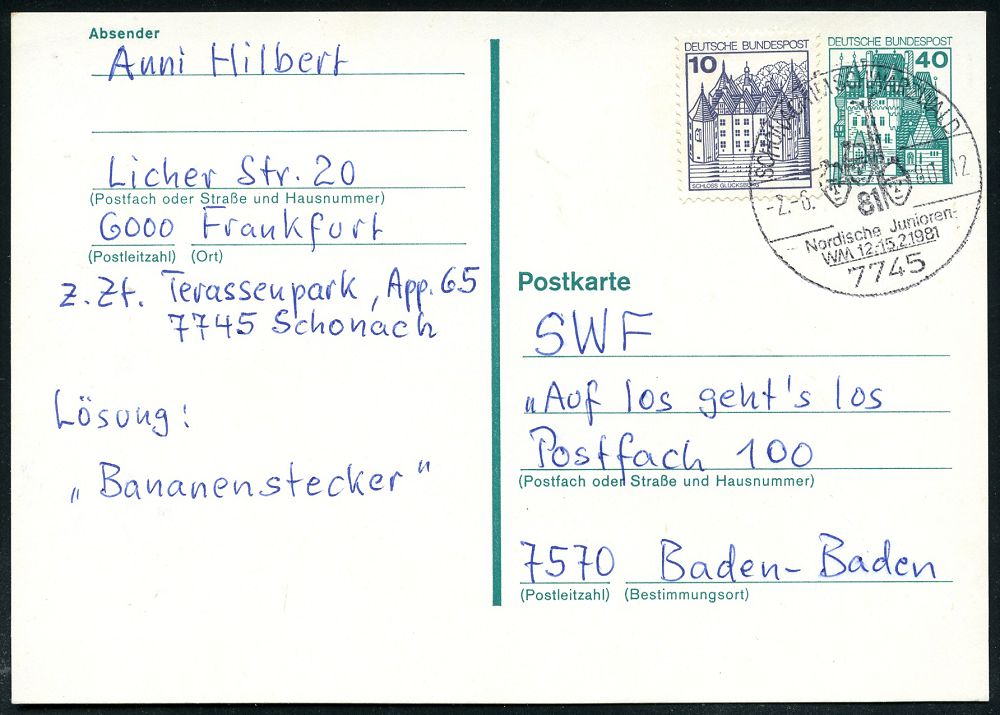 Absender
Anni Hilbert
Licher Str. 20
(Postfach oder Straße und Hausnummer)
6000 Frankfurt
(Postleitzahl) (Ort)
z. Zt. Terassenpark, App. 65
7745 Schonach
Lösung:
„Bananenstecker"
DEUTSCHE BUNDESPOST
10
SCHLOSS GLÜCKSBURG
DEUTSCHE BUNDESPOST
40
81
Nordische Junioren-
WM 12.-15.2.1981
7745
Postkarte
SWF
„Auf los geht's los
Postfach 100
(Postfach oder Straße und Hausnummer)
7570 Baden-Baden
(Postleitzahl) (Bestimmungsort)